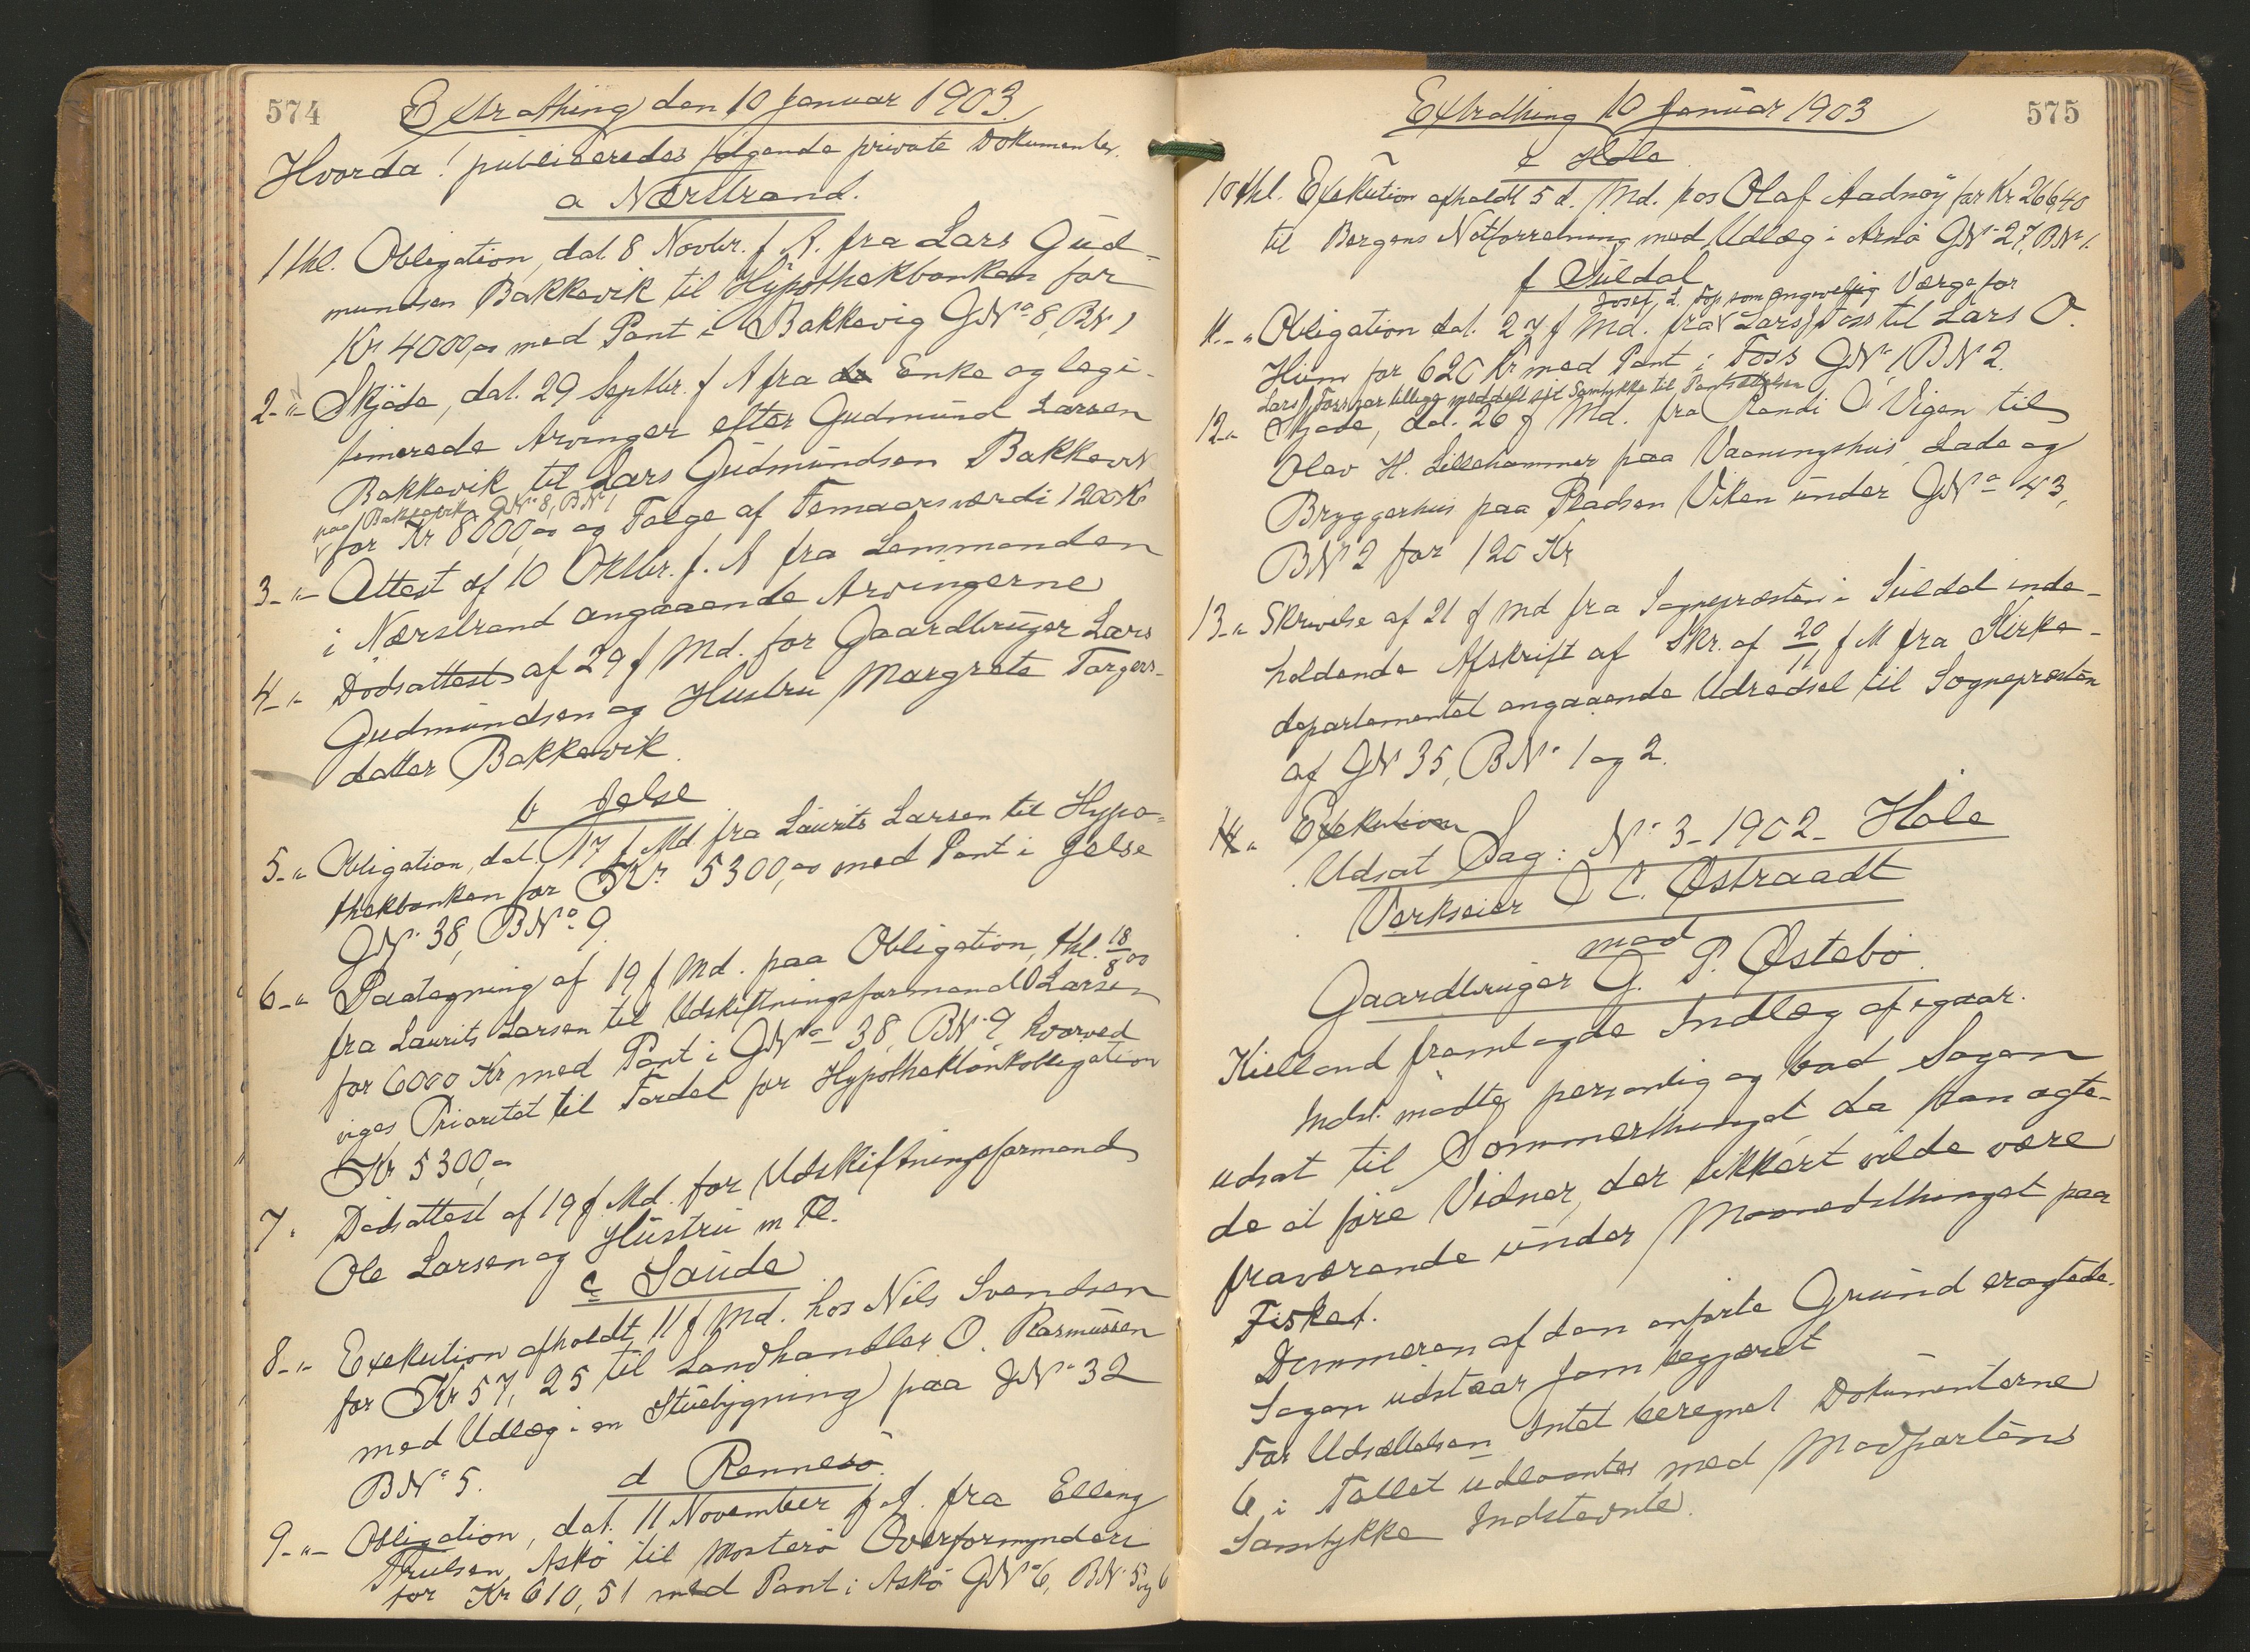 574
Extrathing den 10 Januar 1903.
Hvorda! publiceredes følgende private Dokumenter.
a Nærstrand.
1 thl. Obligation, dat 8 Novbr. f. A. fra Lars Gud-
mundsen Bakkevik til Hypothekbanken for
Kr 4000,00 med Pant i Bakkevig GNo 8, BN 1
2-"- Skjøde, dat. 29 Septbr. f A fra Enke og legi-
timerede Arvinger efter Gudmund Larsen
Bakkevik til Lars Gudmundsen Bakkevik
paa Bakkevik GNo 8, BNo 1
for Kr 8000,00 og Følge af Femaarsværdi 1200 Kr
3-"- Attest af 10 Oktbr. f. A fra Lensmanden
i Nærstrand angaaende Arvingerne
4-"- Dødsattest af 29 f Md. for Gaardbruger Lars
Gudmundsen og Hustru Margrete Torgers-
datter Bakkevik.
b Jelse
5-"- Obligation, dat. 17 f Md fra Laurits Larsen til Hypo-
thekbanken for Kr. 5300,00 med Pant i Jelse
GNo 38, BNo 9.
6-"- Paategning af 19 f Md. paa Obligation, thl. 18/8 00
fra Laurits Larsen til Udskiftningsformand O Larsen
for 6000 Kr med Pant i GNo 38, BN. 9, hvorved
viges Prioritet til Fordel for Hypothekbankobligation
Kr 5300,00
7. Dødsattest af 19 f. Md. for Udskiftningsformand
Ole Larsen og Hustru m Fl.
c Saude
8-"- Exekution afholdt 11 f Md. hos Nils Svendsen
for Kr 57,25 til Landhandler O. Rasmussen
med Udlæg i en Stuebygning paa GNo 32
BNo 5.
d Rennesø
9-"- Obligation, dat. 11 November f. A. fra Elling
Trulsen Askø til Mosterø Overformynderi
for Kr 610,51 med Pant i Askø GNo 6, BN. 5 og 6
Extrathing 10 Januar 1903
575
e Hole
10 thl. Exekution afholdt 5 d. Md. hos Olaf Aadnøy for Kr 266,40
til Bergens Notforretning med Udlæg i Arnø GNo 27, BNo 1.
f Suldal
Josef L. Foss som Værge for
11-"- Obligation dat. 27 f Md. fra Lars J Foss til Lars O.
Hiim for 620 Kr med Pant i Foss GNo 1 BN 2.
Lars J Foss har tillige meddelt sit Samtykke til Pantsættelsen
12-"- Skjøde, dat. 26 f Md. fra Randi O Vigen til
Olav H. Lillehammer paa Vaaningshus, Lade og
Bryggerhus paa Pladsen Viken under GNo 43,
BNo 2 for 120 Kr
13-"- Skrivelse af 21 f Md fra Sognepresten i Suldal inde-
holdende Afskrift af Skr. af 20/11 f A fra Kirke-
departementet angaaende Udredsel til Sognepresten
af GN 35, BNo 1 og 2.
14-"- Exekution
Udsat Sag: No 3-1902- Hole
Verkseier O C. Østraadt
mod
Gaardbruger G. P. Østebø.
Kielland fremlagde Indlæg af igaar.
Indst. mødte personlig og bad Sagen
udsat til Sommerthinget da han agte-
de at føre Vidner, der sikkert vilde være
fraværende under Maanedsthinget paa
Fisket.
Dommeren af den anførte Grund eragtede.
Sagen udstaar som begjæret
For Udsættelsen Intet beregnet Dokumenterne
6 i Tallet udlaantes med Modpartens
Samtykke Indstevnte.